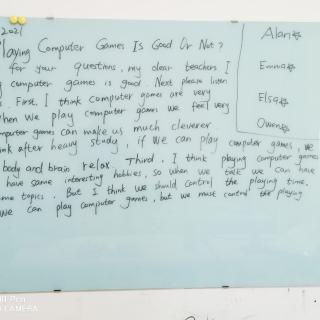 2021
Playing Computer Games Is Good Or Not?
for your questions, my dear teachers I
computer games is good. Next please listen
First, I think computer games are very
When we play computer games we feel very
computer games can make us much cleverer
think after heavy study, if we can play computer games, we
body and brain relax. Third, I think playing computer games
have same interesting hobbies, so when we talk we can have
topics. But I think we should control the playing time.
we can play computer games, but we must control the playing
Alan
Emma
Elsa
Owen
CAMERA